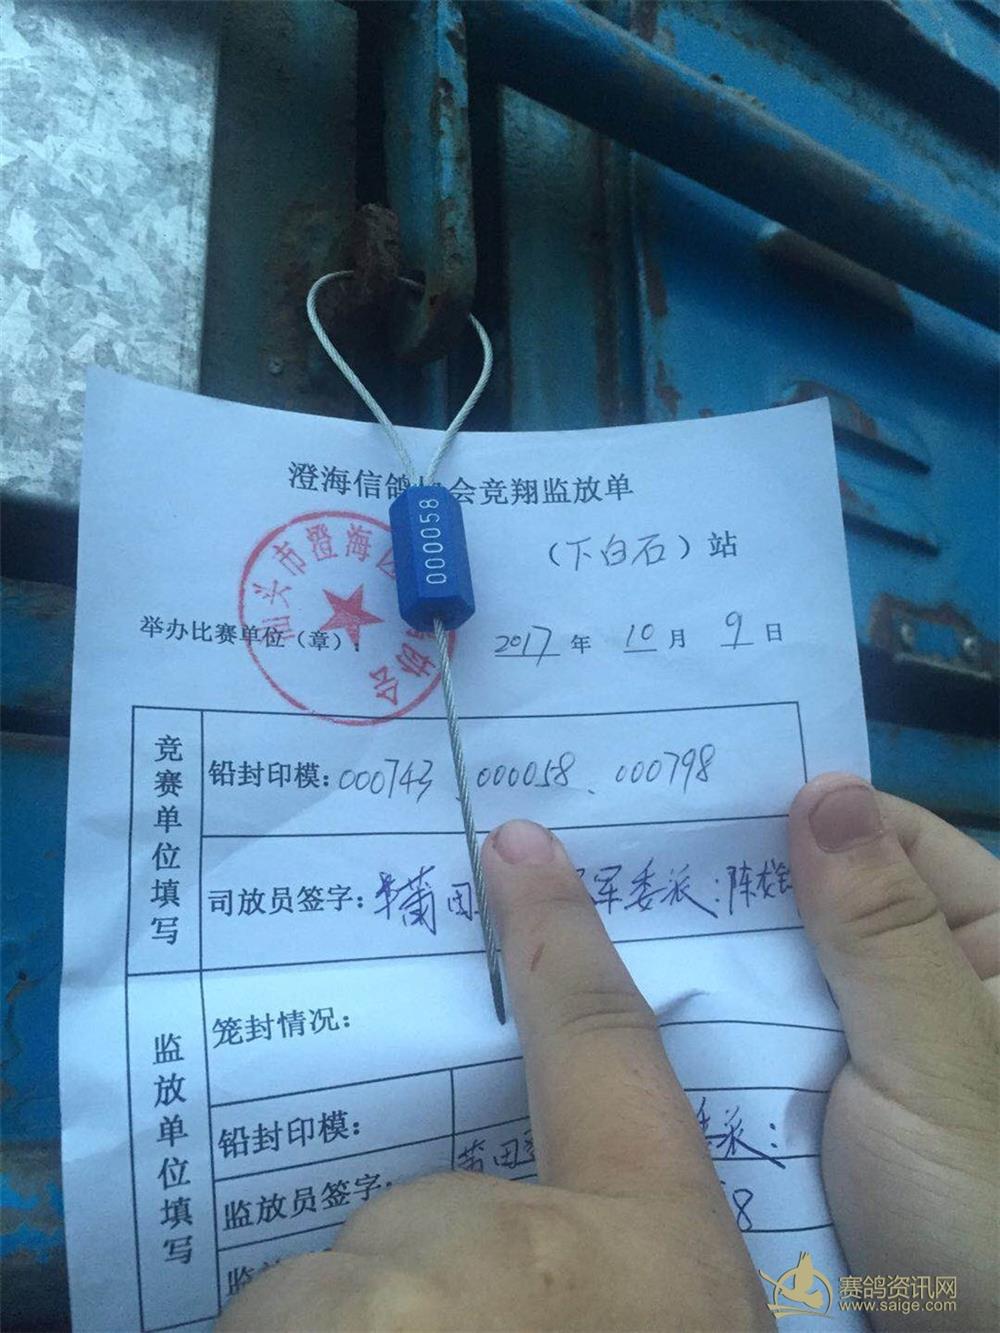 澄海信鸽 会竞翔监放单
000058
（下白石）站
汕头市澄海区 协会
举办比赛单位（章）：
2017 年 10 月 9 日
竞赛单位填写
铅封印模：000743、000058、000798
司放员签字：莆田 军委派：陈
监放单位填写
笼封情况：
铅封印模：
监放员签字：
莆田 委派：
8
赛鸽资讯网
www.saige.com